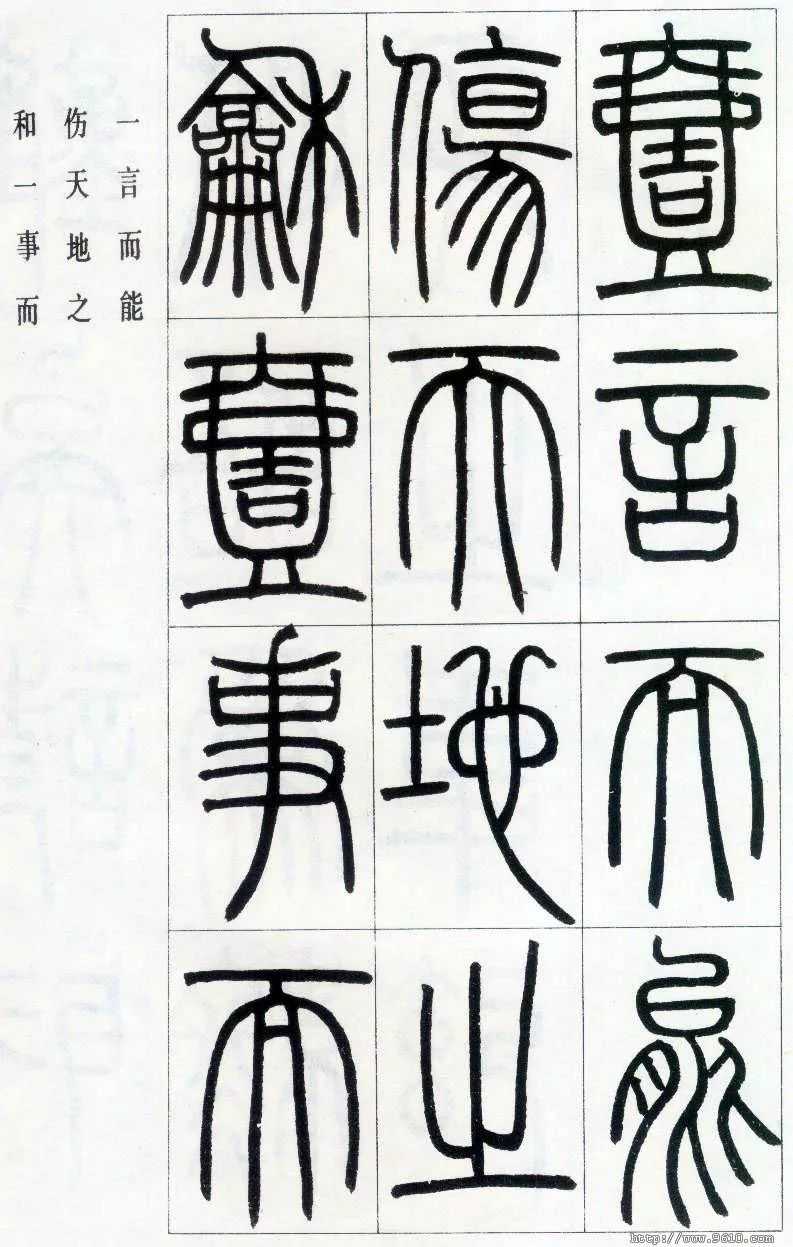 壹言而能
傷天地之
龢壹事而
一言而能
伤天地之
和一事而
http://www.9610.com